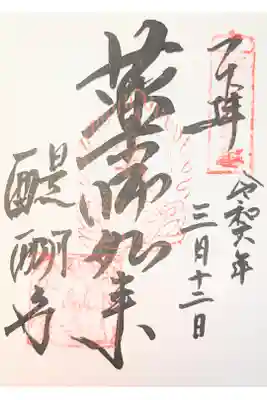 奉拝
令和六年
三月十二日
薬師如来
醍醐寺